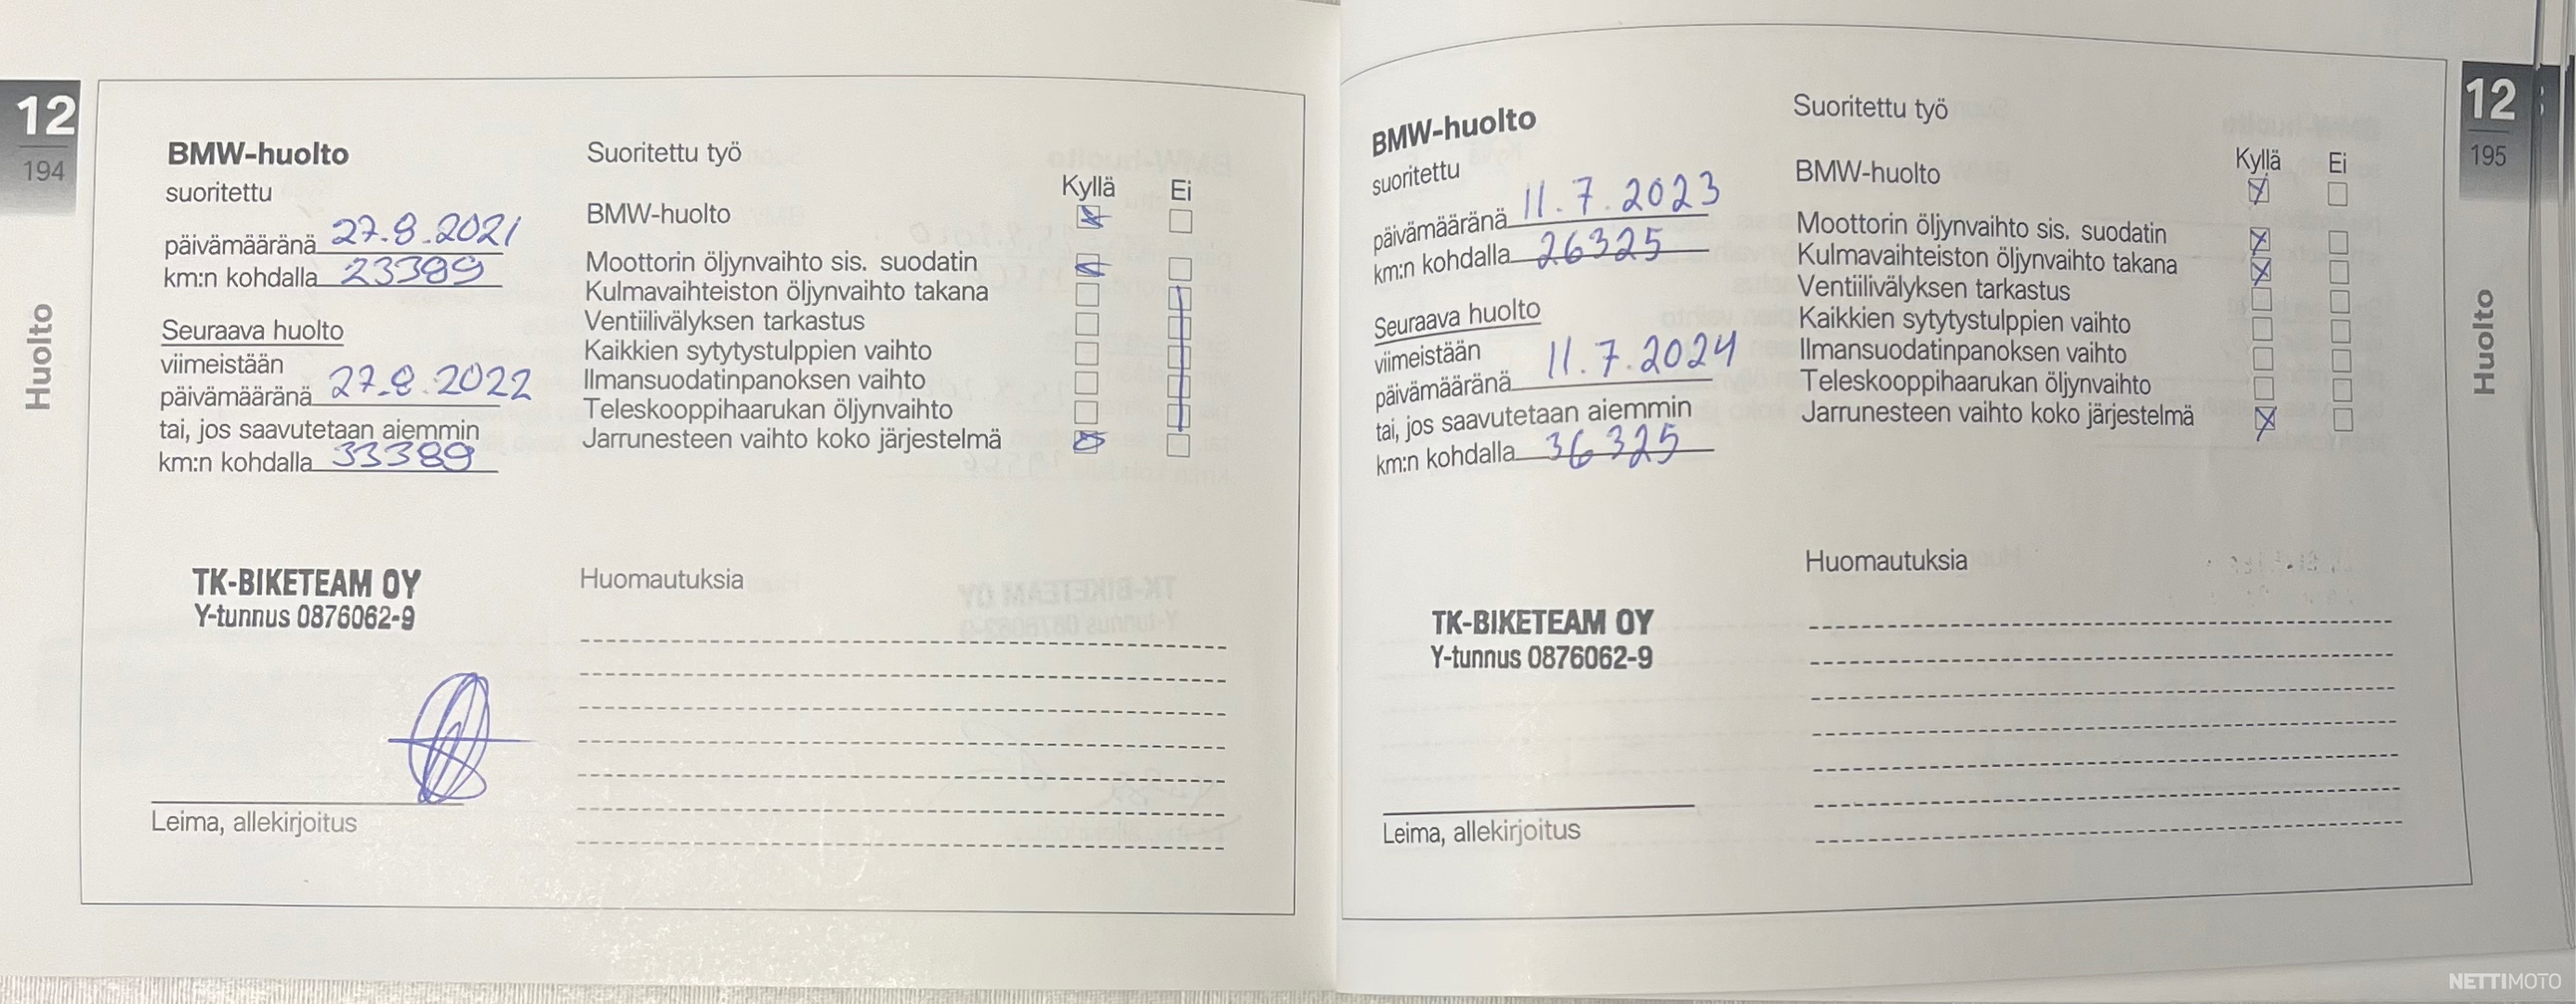 12
194
Huolto
BMW-huolto
suoritettu
päivämääränä 27.8.2021
km:n kohdalla 23389
Seuraava huolto
viimeistään
päivämääränä 27.8.2022
tai, jos saavutetaan aiemmin
km:n kohdalla 33389
TK-BIKETEAM OY
Y-tunnus 0876062-9
Leima, allekirjoitus
Suoritettu työ
Kyllä Ei
BMW-huolto
Moottorin öljynvaihto sis. suodatin
Kulmavaihteiston öljynvaihto takana
Ventiilivälyksen tarkastus
Kaikkien sytytystulppien vaihto
Ilmansuodatinpanoksen vaihto
Teleskooppihaarukan öljynvaihto
Jarrunesteen vaihto koko järjestelmä
Huomautuksia
BMW-huolto
suoritettu
päivämääränä 11.7.2023
km:n kohdalla 26325
Seuraava huolto
viimeistään
päivämääränä 11.7.2024
tai, jos saavutetaan aiemmin
km:n kohdalla 36325
TK-BIKETEAM OY
Y-tunnus 0876062-9
Leima, allekirjoitus
Suoritettu työ
Kyllä Ei
BMW-huolto
Moottorin öljynvaihto sis. suodatin
Kulmavaihteiston öljynvaihto takana
Ventiilivälyksen tarkastus
Kaikkien sytytystulppien vaihto
Ilmansuodatinpanoksen vaihto
Teleskooppihaarukan öljynvaihto
Jarrunesteen vaihto koko järjestelmä
Huomautuksia
12
195
Huolto
NETTIMOTO